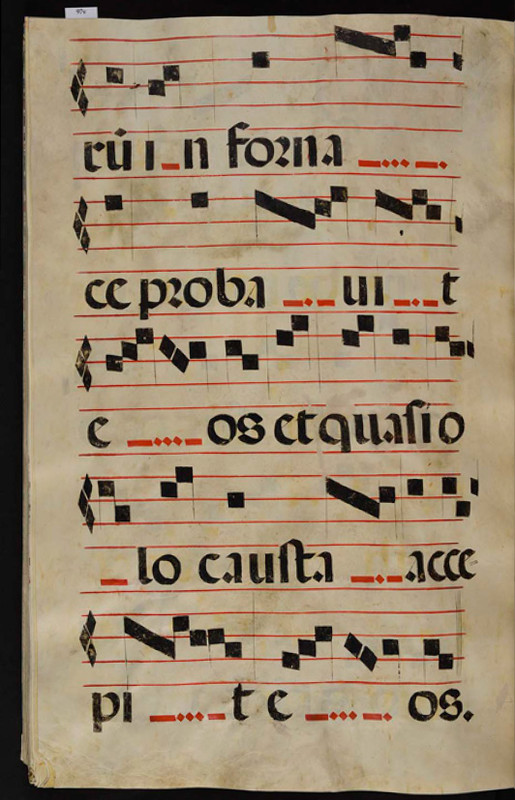 rū i_n forna _..._.
ce proba _._ ui _._ t
e _..._ os et quasi o
_ lo causta _._ acce
pi _..._ t e _..._. os.